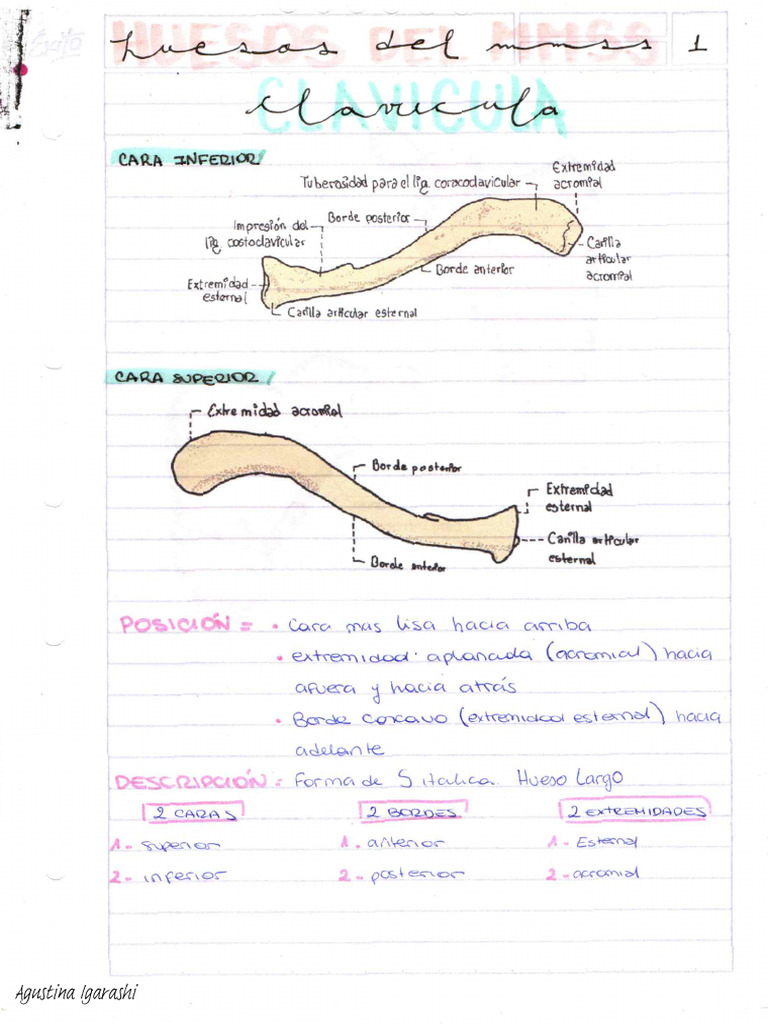 Éxito
HUESOS DEL MMSS 1
huesos del mmss
CLAVICULA
clavicula
CARA INFERIOR
Extremidad
acromial
Tuberosidad para el lig. coracoclavicular
Impresión del
lig. costoclavicular
Borde posterior
Carilla
articular
acromial
Borde anterior
Extremidad
esternal
Carilla articular esternal
CARA SUPERIOR
Extremidad acromial
Borde posterior
Extremidad
esternal
Carilla articular
esternal
Borde anterior
POSICIÓN = • Cara mas lisa hacia arriba
• extremidad aplanada (acromial) hacia
afuera y hacia atrás
• Borde concavo (extremidad esternal) hacia
adelante
DESCRIPCIÓN: Forma de S italica. Hueso Largo
2 CARAS 2 BORDES 2 EXTREMIDADES
1- superior 1- anterior 1- Esternal
2- inferior 2- posterior 2- acromial
Agustina Igarashi